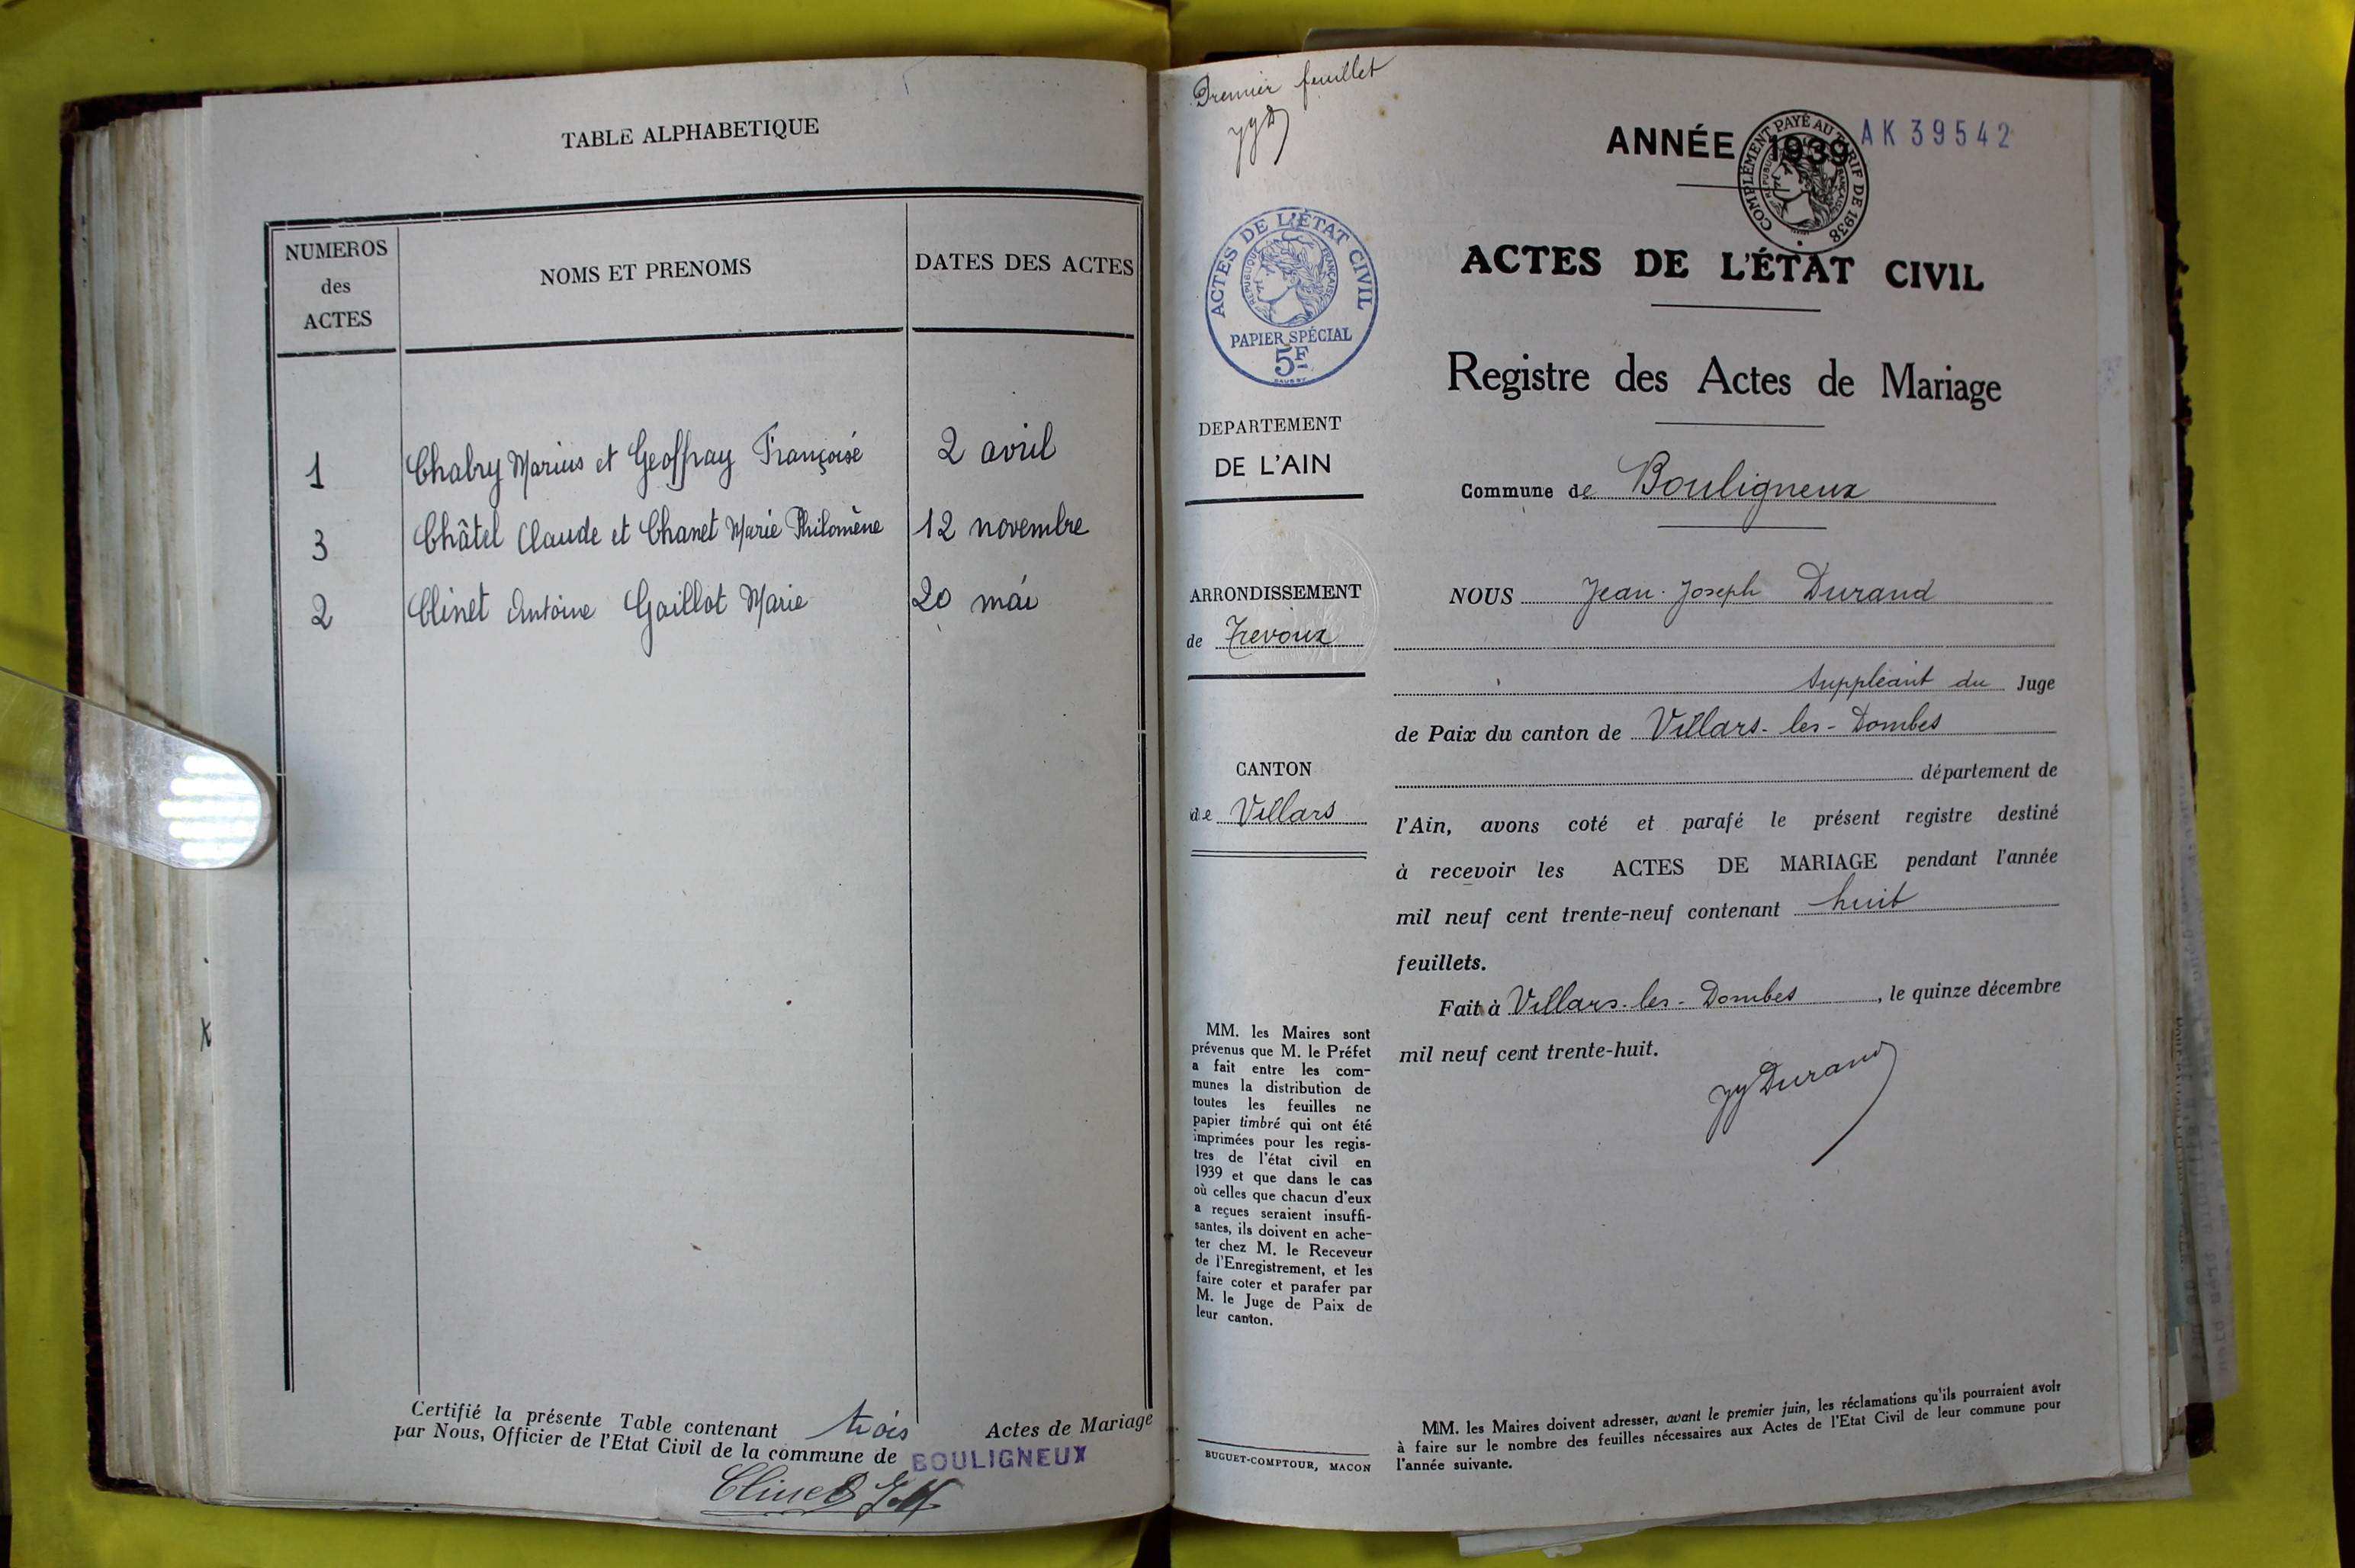 TABLE ALPHABETIQUE
NUMEROS
des
ACTES
NOMS ET PRENOMS
DATES DES ACTES
1 Chabry Marius et Geoffray Françoise 2 avril
3 Châtel Claude et Chanet Marie Philomène 12 novembre
2 Clinet Antoine Gaillot Marie 20 mai
Certifié la présente Table contenant trois Actes de Mariage
par Nous, Officier de l'Etat Civil de la commune de BOULIGNEUX
Clinet
Premier feuillet
JJD
ANNÉE 1939
AK 39542
COMPLÉMENT PAYÉ AU TARIF DE 1938
RÉPUBLIQUE FRANÇAISE
ACTES DE L'ÉTAT CIVIL
RÉPUBLIQUE FRANÇAISE
PAPIER SPÉCIAL
5F
ACTES DE L'ÉTAT CIVIL
Registre des Actes de Mariage
DEPARTEMENT
DE L'AIN
Commune de Bouligneux
ARRONDISSEMENT
de Trevoux
CANTON
de Villars
NOUS Jean-Joseph Durand
suppléant du Juge
de Paix du canton de Villars-les-Dombes
département de
l'Ain, avons coté et parafé le présent registre destiné
à recevoir les ACTES DE MARIAGE pendant l'année
mil neuf cent trente-neuf contenant huit
feuillets.
Fait à Villars-les-Dombes, le quinze décembre
mil neuf cent trente-huit.
JJ Durand
MM. les Maires sont
prévenus que M. le Préfet
a fait entre les com-
munes la distribution de
toutes les feuilles ne
papier timbré qui ont été
imprimées pour les regis-
tres de l'état civil en
1939 et que dans le cas
où celles que chacun d'eux
a reçues seraient insuffi-
santes, ils doivent en ache-
ter chez M. le Receveur
de l'Enregistrement, et les
faire coter et parafer par
M. le Juge de Paix de
leur canton.
BUGUET-COMPTOUR, MACON
MM. les Maires doivent adresser, avant le premier juin, les réclamations qu'ils pourraient avoir
à faire sur le nombre des feuilles nécessaires aux Actes de l'Etat Civil de leur commune pour
l'année suivante.